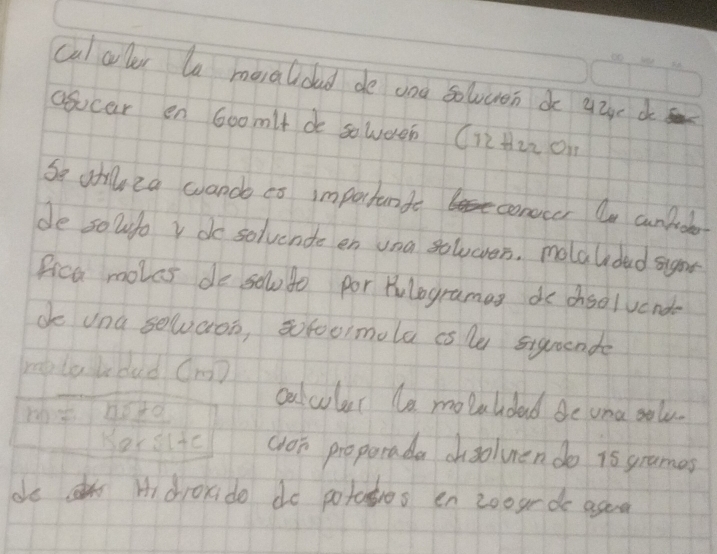 Calcular la moralidad de una solución de 424c de
asucar en 600 mlt de solución C12H22O11
Se utiliza cuando es importante conocer la cantidad
de soluto y de solvende en una solución. molalidad signi
fica moles de soluto por kilogramos de disolvente
de una solución, su formula es la siguiente
molalidad (m)
m = nsto
Kgrslte
calcular la molalidad de una solu-
ción preparada disolviendo 15 gramos
de Hidroxido de potasios en 200gr de agua